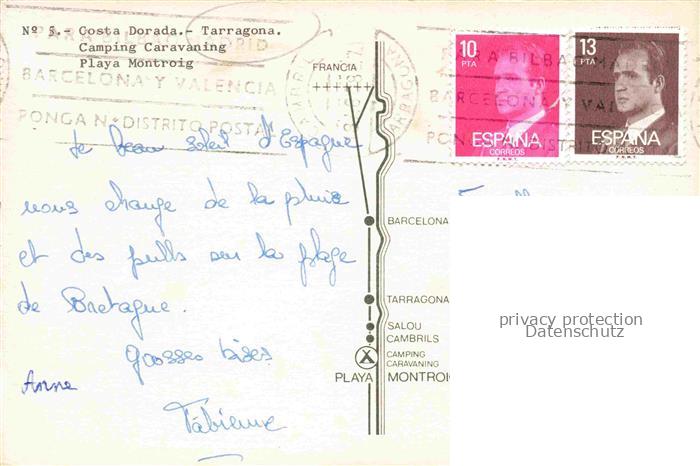 Nº 5.- Costa Dorada.- Tarragona.
Camping Caravaning
Playa Montroig
PARA BILBAO MADRID
BARCELONA Y VALENCIA
PONGA Nº DISTRITO POSTAL
Le beau soleil d'Espagne
nous change de la pluie
et des pulls sur la plage
de Bretagne.
Grosses bises
Anne
Fabienne
FRANCIA
BARCELONA
TARRAGONA
SALOU
CAMBRILS
CAMPING
CARAVANING
PLAYA MONTROIG
10
PTA
ESPAÑA
CORREOS
F.N.M.T.
13
PTA
ESPAÑA
CORREOS
F.N.M.T.
privacy protection
Datenschutz